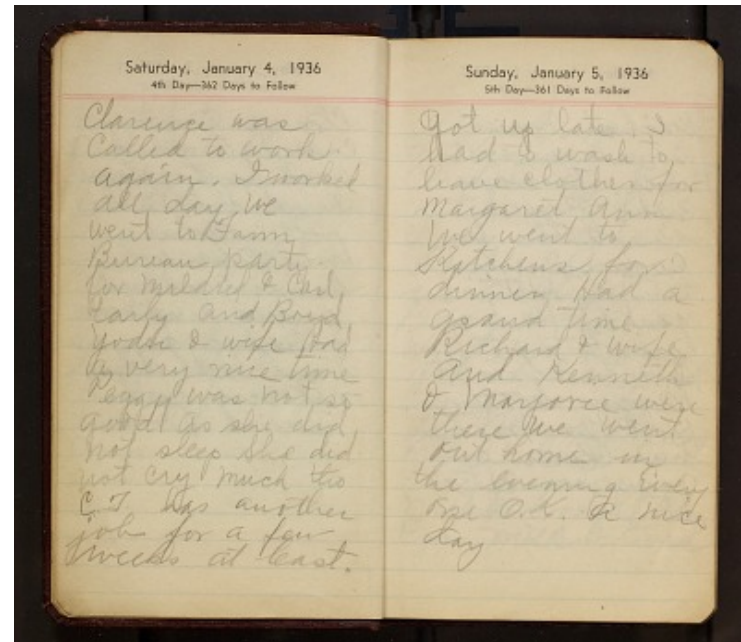 Saturday, January 4, 1936
4th Day—362 Days to Follow
Clarence was
Called to work
again. I worked
all day, We
went to Farm
Bureau party
for Mildred & Carl
Early And Boyd
& wife Had
a very nice time
Peggy was not so
good as she did
not sleep She did
not cry much tho
C.T. has another
job for a few
weeks at least.
Sunday, January 5, 1936
5th Day—361 Days to Follow
Got up late. I
had to wash to
leave clothes for
Margaret Ann
We went to
Kitchens for
dinner Had a
grand time
Richard & wife
And Kenneth
& Marjorie were
there We went
out home in
the evening Every
one O.K. A nice
day